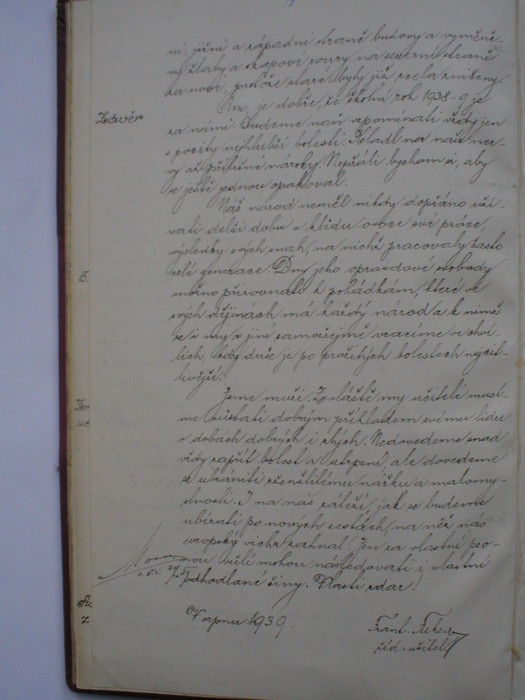 ní, jižní a západní straně budovy a vyměně-
ny žlaby a okapové roury na severní straně
za nové, protože staré byly již zcela zničeny.
Závěr
Ano, je dobře, že školní rok 1938-9 je
za námi. Budeme naň vzpomínati vždy jen
s pocity nejhlubší bolesti. Kladl na naše ner-
vy až přílišné nároky. Nepřáli bychom si, aby
se ještě jednou opakoval.
Náš národ neměl nikdy dopřáno uží-
vati delší dobu v klidu ovoce své práce,
výsledky svých snah, na nichž pracovaly často
celé generace. Dny jeho opravdové svobody
možno přirovnati k pohádkám, které ve
svých dějinách má každý národ a k nimž
se i my a jiní samozřejmě vracíme ve chví-
lích, kdy duše je po prožitých bolestech nejcit-
livější.
Jsme muži. Zvláště my učitelé musí-
me zůstati dobrým příkladem svému lidu
v dobách dobrých i zlých. Nedovedeme snad
vždy zapřít bolest a utrpení, ale dovedeme
se ubrániti zženštilému nářku a malomy-
slnosti. I na nás záleží, jak se budeme
ubírati po nových cestách, na něž nás
evropský vichr zahnal. Jen za vlastní pev-
nou vůlí mohou následovati i vlastní
odhodlané činy. Vlasti zdar!
V srpnu 1939.
Frant.
říd. učitel